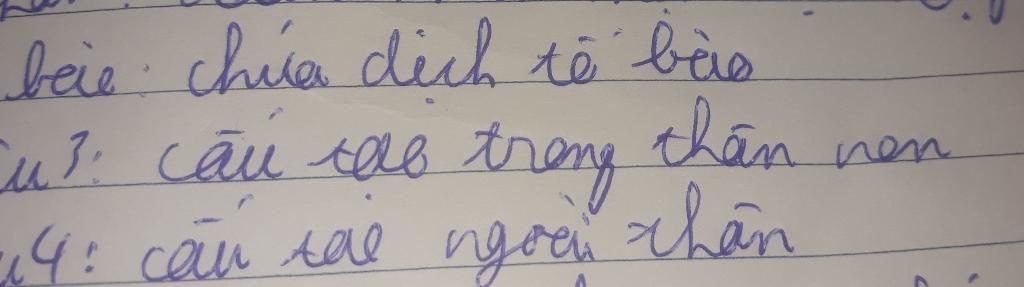 bào: chứa dịch tế bào
u 3: cấu tạo trong thân non
u 4: cấu tạo ngoài thân